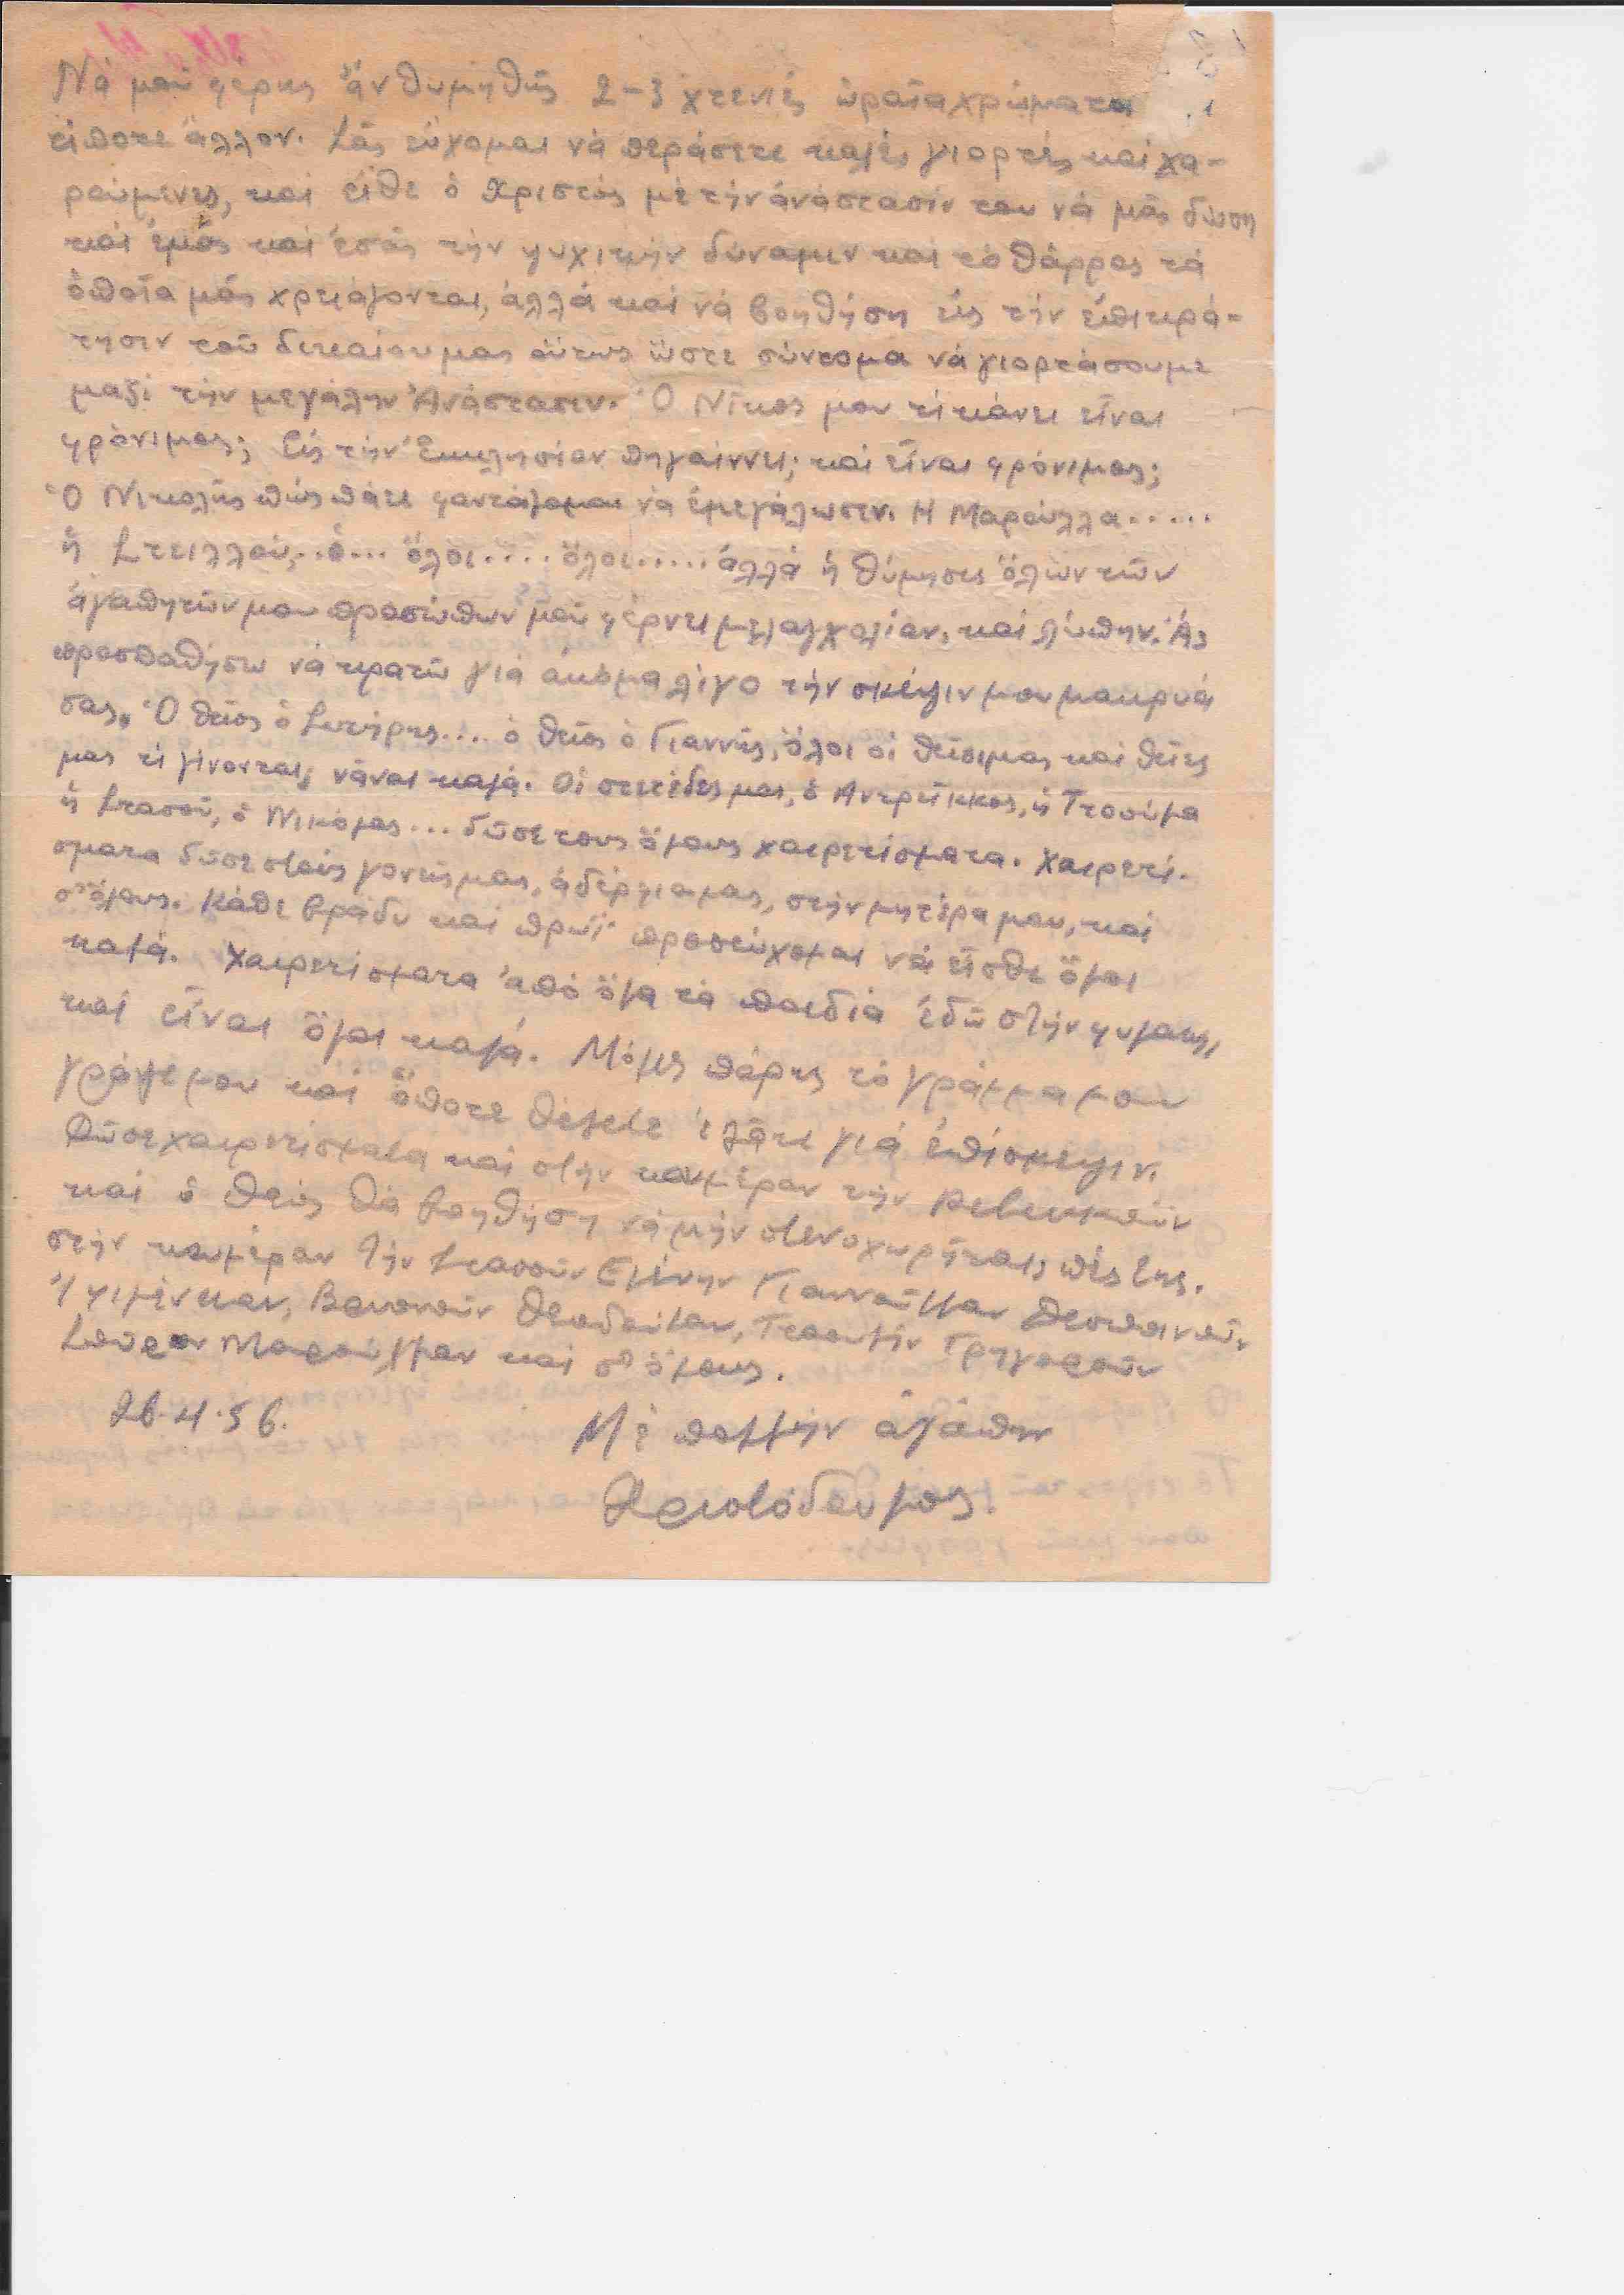 Νά μοῦ φέρης ἄν θυμηθῆς 2-3 χτενιές ὡραῖα χρώματα
τίποτε ἄλλον. Σᾶς εὔχομαι νά περάσετε καλές γιορτές καί χα-
ρούμενες, καί εἴθε ὁ Χριστός μέ τήν ἀνάστασίν του νά μᾶς δώση
καί ἐμᾶς καί ἐσᾶς τήν ψυχικήν δύναμιν καί τό θάρρος τά
ὁποῖα μᾶς χρειάζονται, ἀλλά καί νά βοηθήση εἰς τήν ἐπικρά-
τησιν τοῦ δικαίου μας οὕτως ὥστε σύντομα νά γιορτάσουμε
μαζί τήν μεγάλην Ἀνάστασιν. Ὁ Νῖκος μου τί κάνει εἶναι
φρόνιμος; Εἰς τήν Ἐκκλησίαν πηγαίννει; καί εἶναι φρόνιμος;
Ὁ Νικολής πώς πάει φαντάζομαι νά ἐμεγάλωσεν. Η Μαρούλλα.....
ἡ Στειλλοῦ,..ὁ... ὅλοι.... ὅλοι.....ἀλλά ἡ θύμησις ὅλων τῶν
ἀγαπητῶν μου προσώπων μοῦ φέρνει μελαγχολίαν, καί λύπην. Ἄς
προσπαθήσω νά κρατῶ γιά ἀκόμα λίγο τήν σκέψιν μου μακρυά
σας. Ὁ θεῖος ὁ Σωτήρης.... ὁ θεῖος ὁ Γιαννής, ὅλοι οἱ θεῖοι μας καί θεῖες
μας τί γίνονται, νἆναι καλά. Οἱ στετέδες μας, ὁ Αντρίκκος, ἡ Τσούλα
ἡ Στασοῦ, ὁ Νικόλας... δῶσε τους ὅλους χαιρετίσματα. Χαιρετί-
σματα δῶσε στούς γονεῖς μας, ἀδέρφια μας, στήν μητέρα μου, καί
σ' ὅλους. Κάθε βράδυ καί πρωΐ προσεύχομαι νά εἶσθε ὅλοι
καλά. Χαιρετίσματα ἀπό ὅλα τά παιδιά ἐδῶ στήν φυλακή,
καί εἶναι ὅλοι καλά. Μόλις πάρης τό γράμμα μου
γράψε μου καί ὅποτε θέλετε ἐλᾶτε γιά ἐπίσκεψιν.
Δῶσε χαιρετίσματα καί στήν κουμέραν τήν
καί ὁ Θεός θά βοηθήση νά μήν στενοχωρῆται, πές της.
στήν κουμέραν τήν Στασοῦν Ελένην Γιαννοῦλλαν Δεσποινοῦν
Ἰφιγένειαν, Θεοδούλαν, Γρηγοροῦν
Σπῦρον Μαρούλλαν καί σ' ὅλους.
26.4.56.
Μέ πολλήν ἀγάπην
Χριστόδουλος.